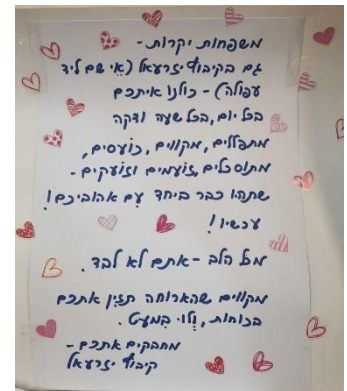 משפחות יקרות-
גם בקיבוץ יזרעאל (אי שם ליד
עפולה) - כולנו איתכם
בכל יום, בכל שעה ודקה
מתפללים, מקווים, כועסים,
מתוסכלים, זועמים וזועקים -
שתהיו כבר ביחד עם אהוביכם!
עכשיו!
מכל הלב - אתם לא לבד.
מקווים שהארוחה תזין אתכם
בכוחות, ולו במעט.
מחבקים אתכם -
קיבוץ יזרעאל